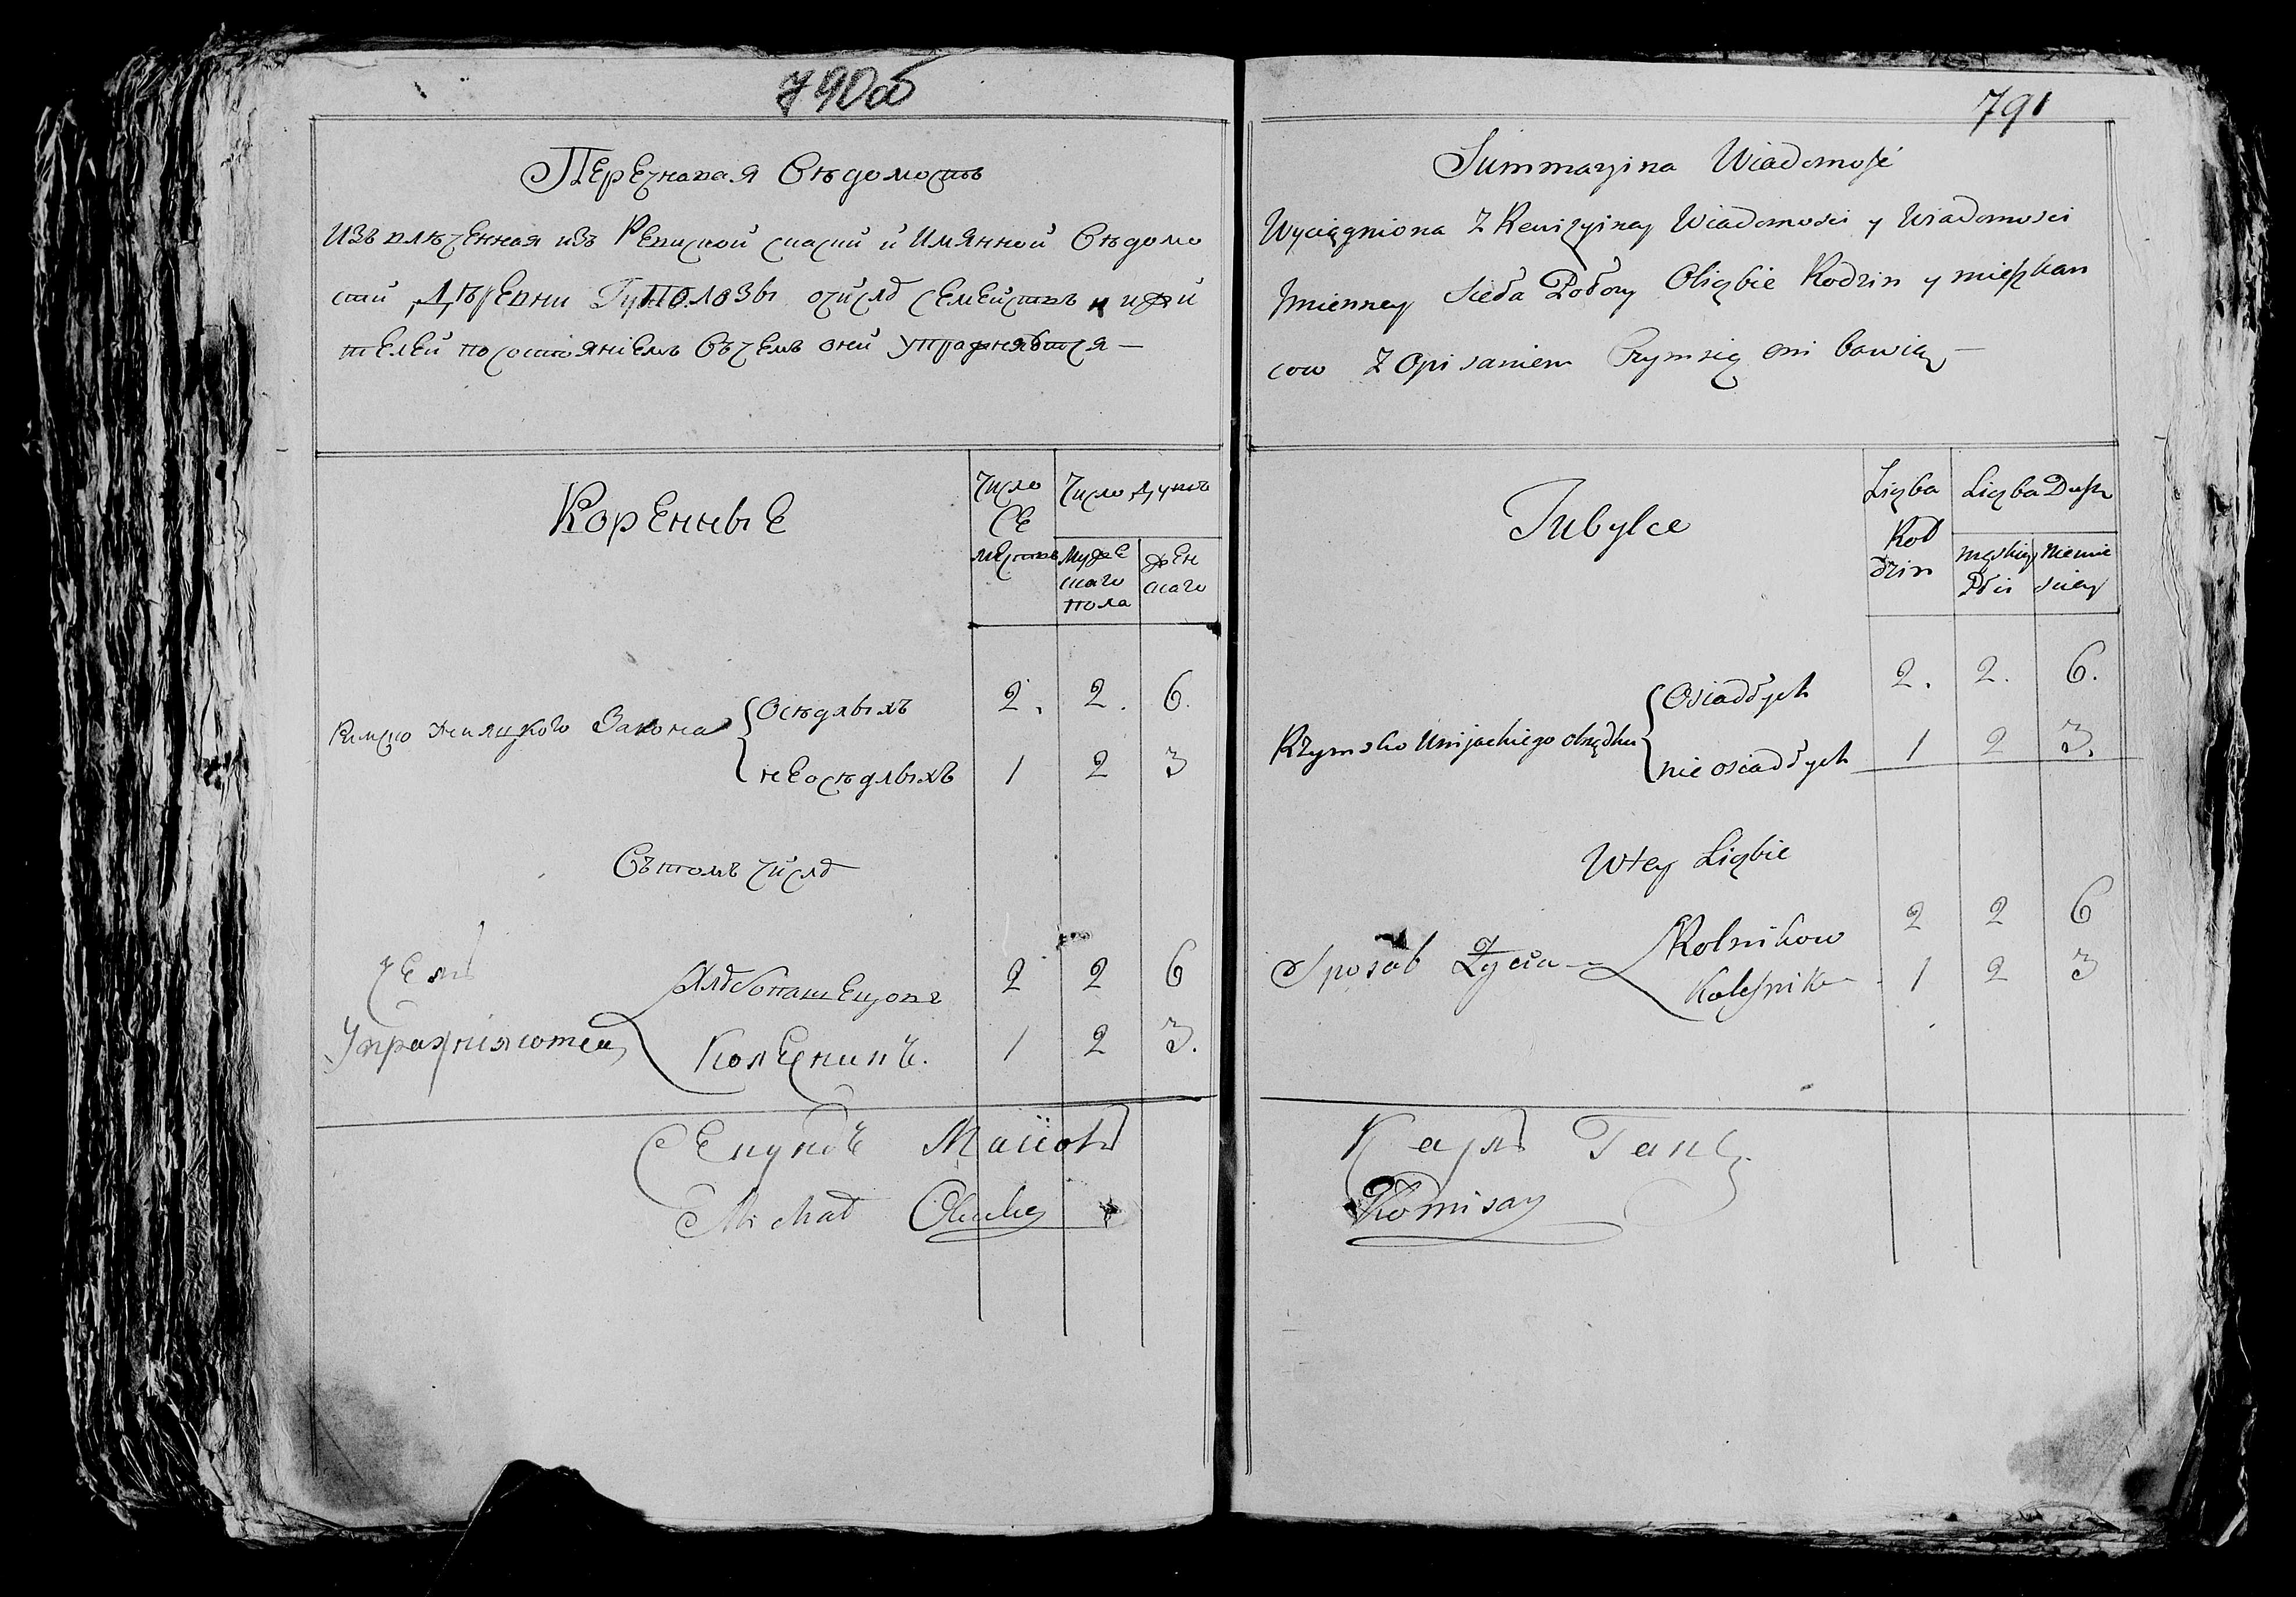 790об
Перечневая Вѣдомость
Извлѣченная изъ Ревиской скаски и Имянной Вѣдомо
сти Дѣревни о числѣ семействъ и жи
телей по состояніемъ Въчемъ они упражняются —
Коренные
Число
Се
мействъ
Число Душъ
Мужес
скаго
пола
Жен
скаго
Римско Униацкого Закона
Осѣдлыхъ 2. 2. 6.
неосѣдлыхъ 1 2 3
Въ томъ числѣ
Чемъ
Упражняются
Хлѣбопашецовъ 2 2 6
Колесникъ. 1 2 3.
Michał
791
Summaryina Wiadomość
Wyciągniona Z Rewizyiney Wiadomosci y Wiadomosci
Jmienney Sioła O liczbie Rodzin y mieszkan
cow Z Opisaniem Czym się oni bawią —
Tubylce
Liczba
Rod
dzin
Liczba Dusz
męskiey
Płci
niewie
sciey
Rzymsko Unijackiego obrządku
Osiadłych 2. 2. 6.
nie osiadłych 1 2 3.
W tey Liczbie
Sposob Życia —
Rolnikow 2 2 6
Kolesnik 1 2 3
Карлъ Ганъ
Komisarz